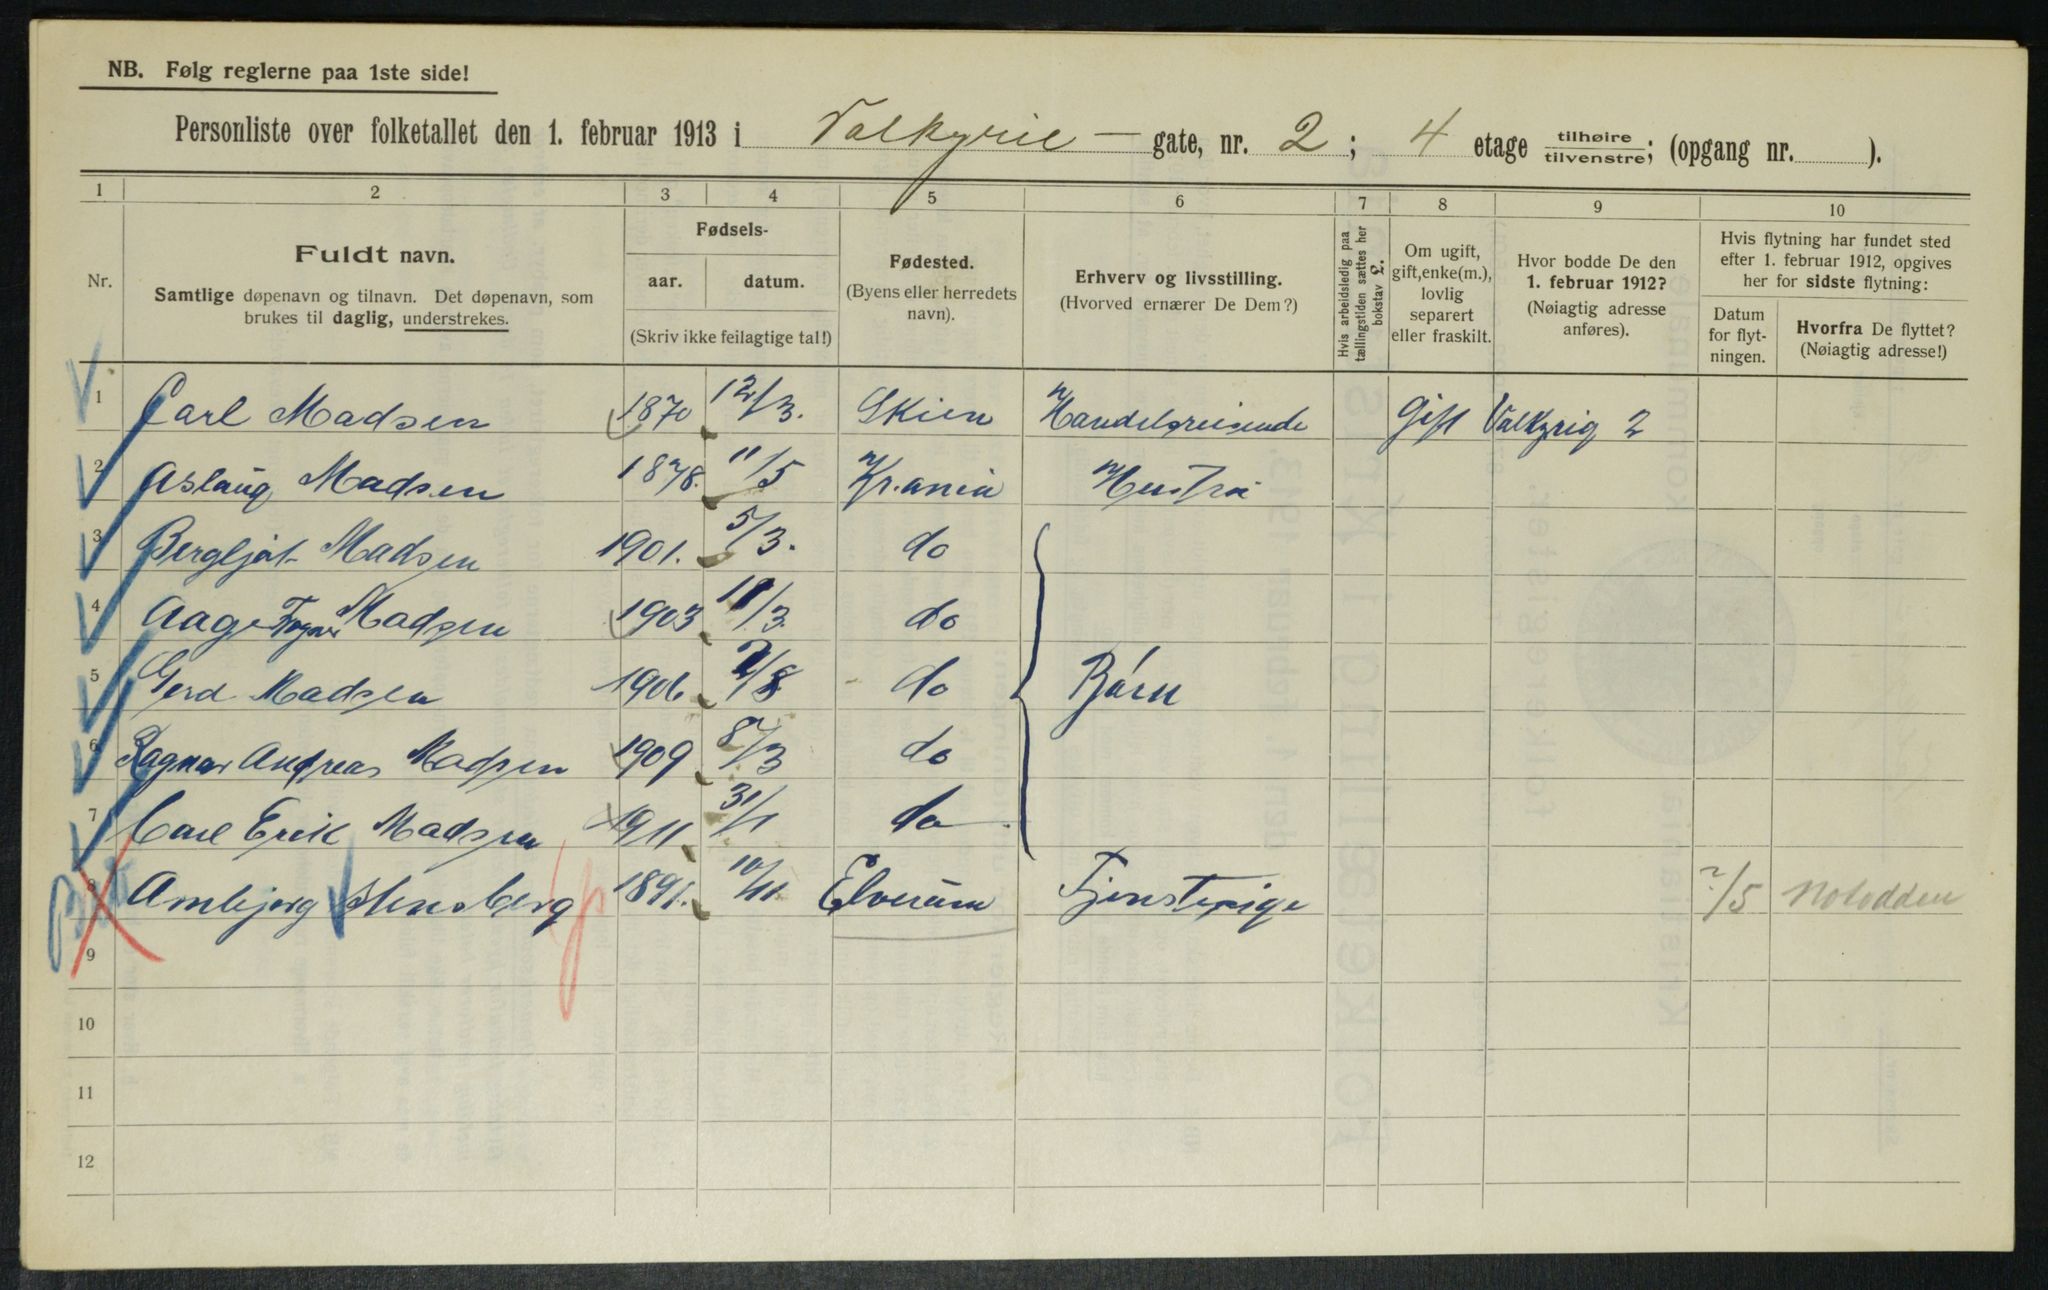 NB. Følg reglerne paa 1ste side!
Personliste over folketallet den 1. februar 1913 i Valkyrie-gate, nr. 2; 4 etage tilhøire/tilvenstre; (opgang nr. ).
1 2 3 4 5 6 7 8 9 10
Nr.
Fuldt navn.
Samtlige døpenavn og tilnavn. Det døpenavn, som
brukes til daglig, understrekes.
Fødsels-
aar. datum.
(Skriv ikke feilagtige tal!)
Fødested.
(Byens eller herredets
navn).
Erhverv og livsstilling.
(Hvorved ernærer De Dem?)
Hvis arbeidsledig paa
tællingstiden sættes her
bokstav L.
Om ugift,
gift, enke(m.),
lovlig
separert
eller fraskilt.
Hvor bodde De den
1. februar 1912?
(Nøiagtig adresse
anføres).
Hvis flytning har fundet sted
efter 1. februar 1912, opgives
her for sidste flytning:
Datum
for flyt-
ningen.
Hvorfra De flyttet?
(Nøiagtig adresse!)
1 Carl Madsen 1870 12/3. Skien Handelsreisende Gift Valkyrig 2
2 Aslaug Madsen 1878. 11/5 Kr.ania Hustru
3 Bergljot Madsen 1901. 5/3. do
4 Aage Madsen 1903 11/3. do
5 Gerd Madsen 1906 2/8 do Børn
6 Ragnar Andreas Madsen 1909 8/3 do
7 Carl Erik Madsen 1911 31/1 do
8 Arnbjørg Stensberg 1891. 10/11. Elverum Tjenstepige 2/5 Notodden
9
10
11
12